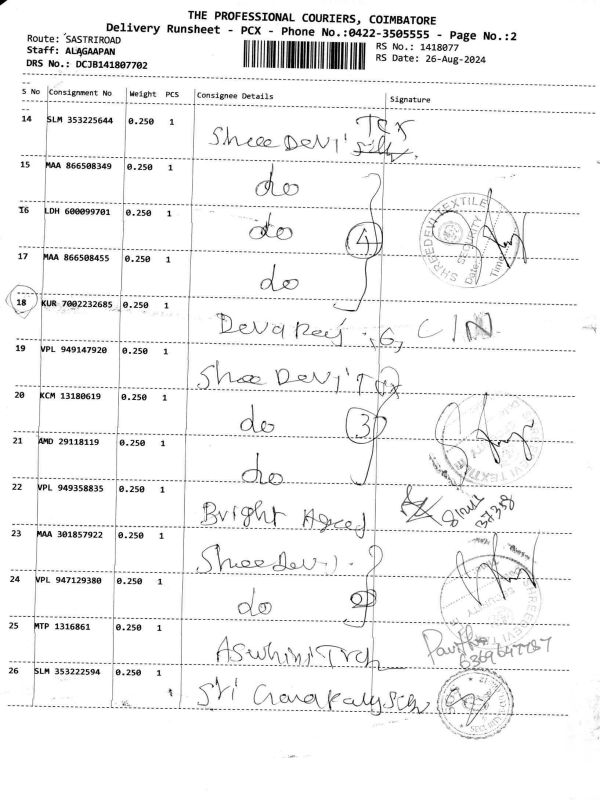 THE PROFESSIONAL COURIERS, COIMBATORE
Delivery Runsheet - PCX - Phone No.:0422-3505555 - Page No.:2
Route: SASTRIROAD
Staff: ALAGAAPAN
DRS No.: DCJB141807702
RS No.: 1418077
RS Date: 26-Aug-2024
S No Consignment No Weight PCS Consignee Details Signature
14 SLM 353225644 0.250 1 Shree Devi Tex
15 MAA 866508349 0.250 1 do
16 LDH 600099701 0.250 1 do 4
17 MAA 866508455 0.250 1 do
SHREEDEVI TEXTILE
SECURITY
Date:
Time
18 KUR 7002232685 0.250 1 Devaraj .G,
19 VPL 949147920 0.250 1 Shree Devi Tex
20 KCM 13180619 0.250 1 do 3
21 AMD 29118119 0.250 1 do
22 VPL 949358835 0.250 1 Bright
23 MAA 301857922 0.250 1 Shree devi
24 VPL 947129380 0.250 1 do 2
25 MTP 1316861 0.250 1 Aswhini Tech
26 SLM 353222594 0.250 1 Sri